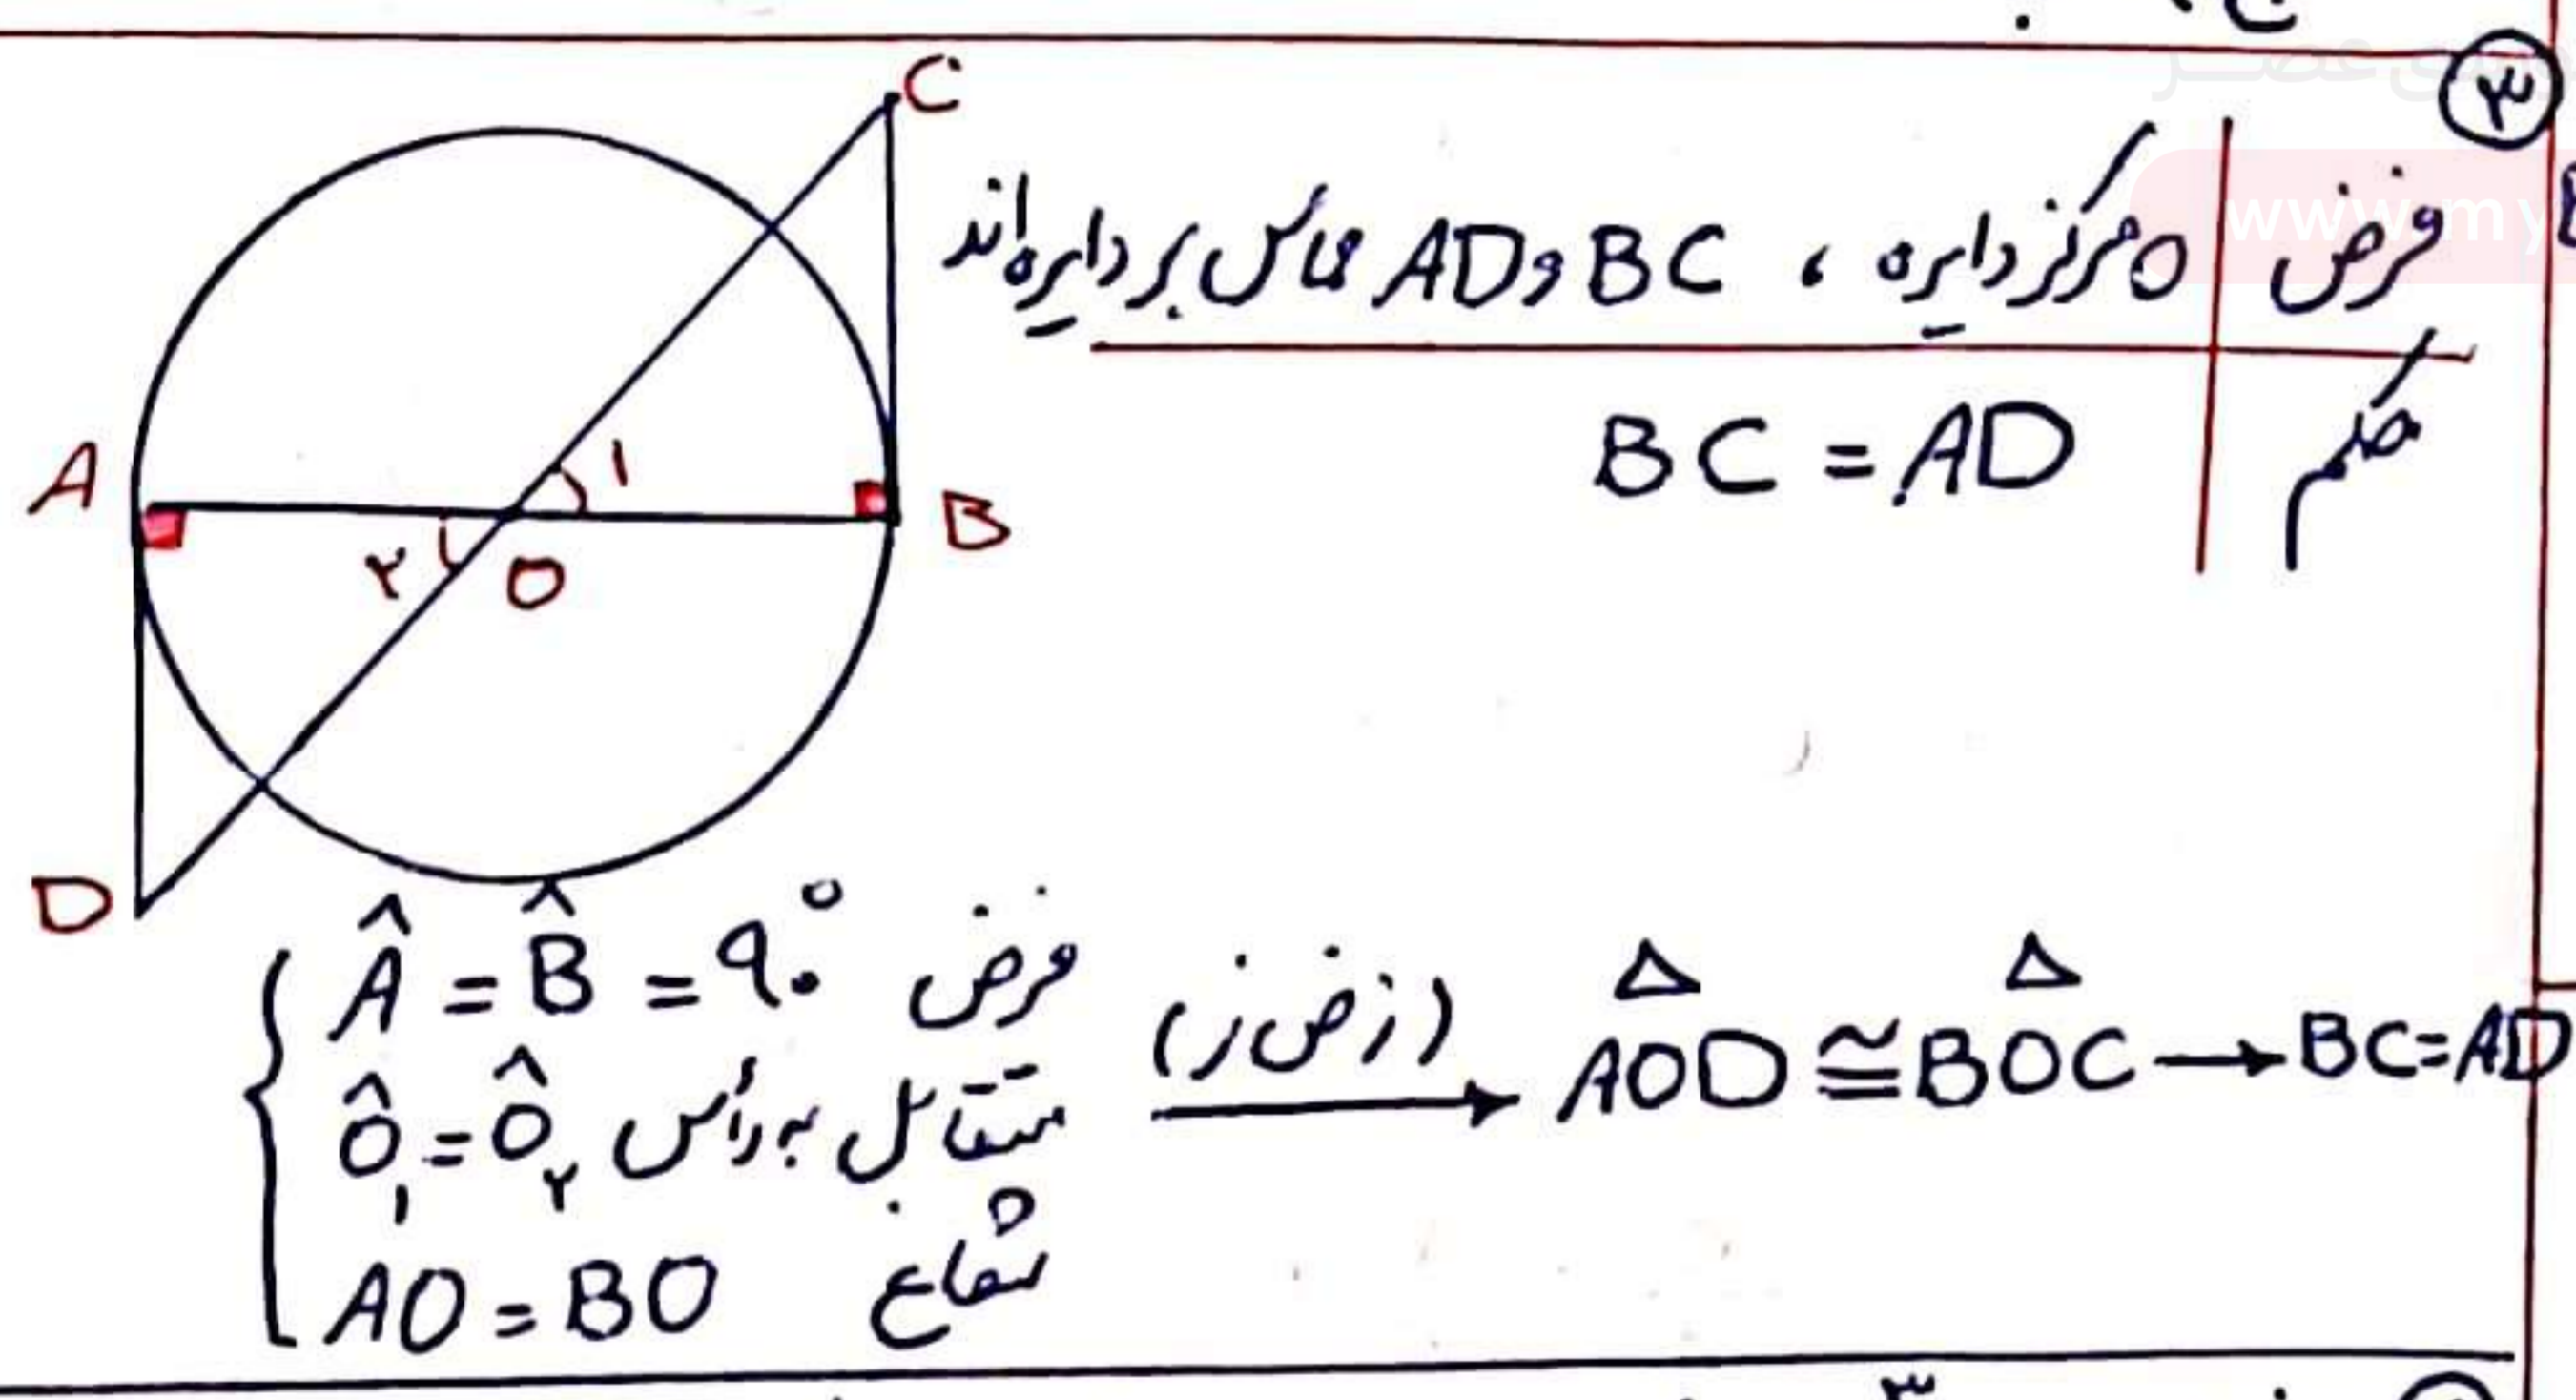 ۳
فرض O مرکز دایره ، BC و AD مماس بر دایره‌اند
حکم BC = AD
C
۱
A
B
۲
O
D
Â = B̂ = ۹۰° فرض
Ô۱ = Ô۲ متقابل به رأس
AO = BO شعاع
(ز ض ز)
AOD ≅ BOC → BC = AD
www.my